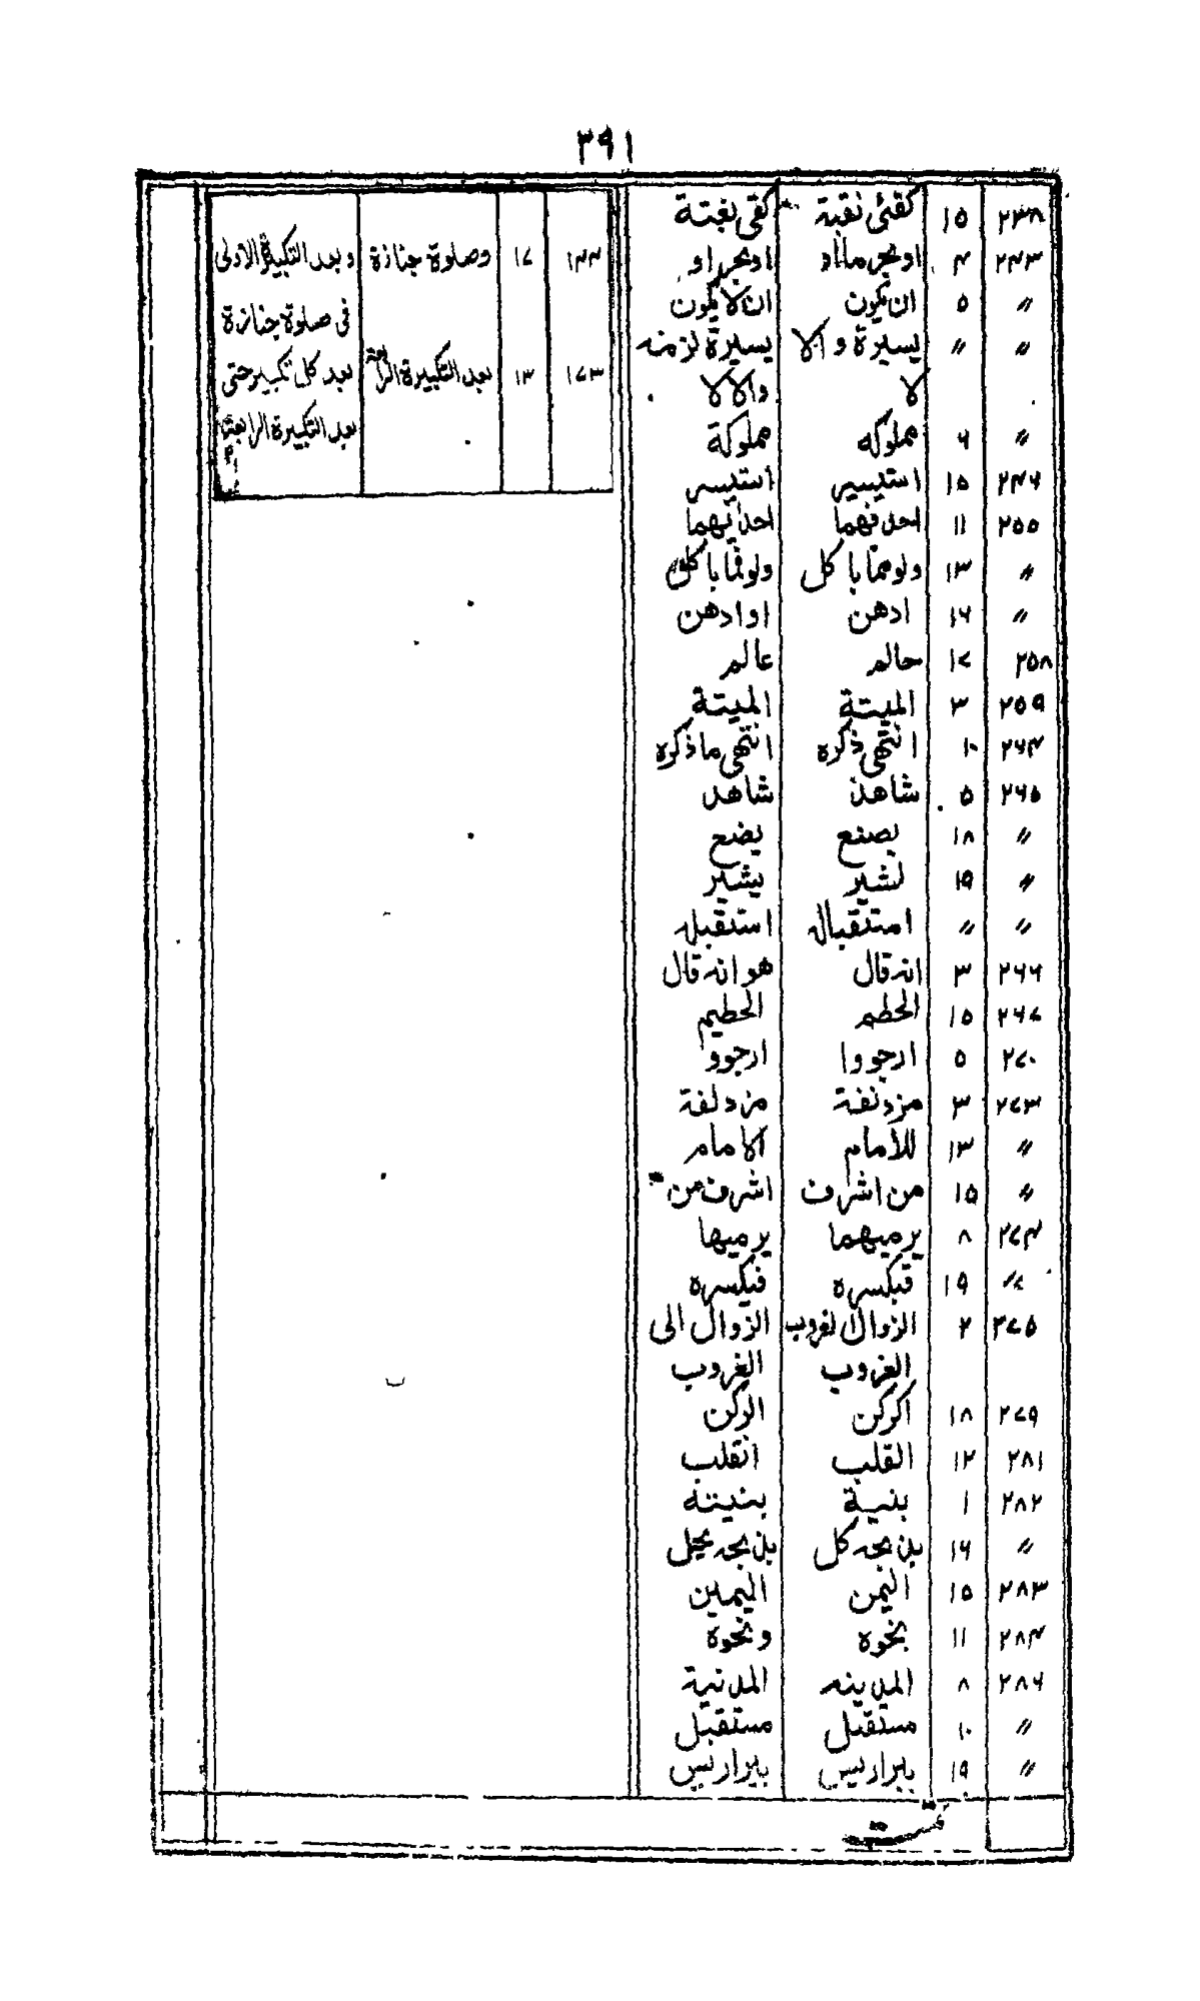 ٣٩١
٢٣٨ ١٥ كفئى نقبة كفى بغتة
٢٤٣ ٤ او بحر ماأد او بحر او
〃 ٥ ان يكون ان لا يكون
〃 〃 يسيرة والا يسيرة لزمنه
لا والالا
〃 ٦ مملوكه مملوكة
٢٤٦ ١٥ استيسير استيسر
٢٥٥ ١١ احدفهما احدايهما
〃 ١٣
〃 ١٦ ادهن او ادهن
٢٥٨ ١٧ حالم عالم
٢٥٩ ٣ الميتة الميتة
٢٦٤ ١٠ انتهى ذكره انتهى ما ذكره
٢٦٥ ٥ شاهذ شاهد
〃 ١٨ يصنع يضح
〃 ١٩ نشير يشير
〃 〃 استقباله استقبله
٢٦٦ ٣ انه قال هو انه قال
٢٦٧ ١٥ الحطم الحطيم
٢٧٠ ٥ ارجووا ارجوو
٢٧٣ ٣ مزدنفة مزدلفة
〃 ١٣ للأمام الامام
〃 ١٥ من اشرف اشرف من
٢٧٤ ٨ يرميهما يرميها
〃 ١٩ قبكسره فيكسره
٢٧٥ ٢ الزوال لغروب الزوال الى
الغروب الغروب
٢٧٩ ١٨ اكركن الركن
٢٨١ ١٢ القلب انقلب
٢٨٢ ١ بنية بنيته
〃 ١٦
٢٨٣ ١٥ اليمن اليمين
٢٨٤ ١١ نحوة ونحوة
٢٨٦ ٨ المدينه المدنية
〃 ١٠ مستقبل مستقبل
〃 ١٩ ببراريس بيراريس
١٤٤ ١٧ وصلوة جنازة وبعد التكبيرة الاولى
فى صلوة جنازة
١٧٣ ١٣ بعد التكبيرة الرابعة بعد كل تكبير حتى
بعد التكبيرة الرابعة